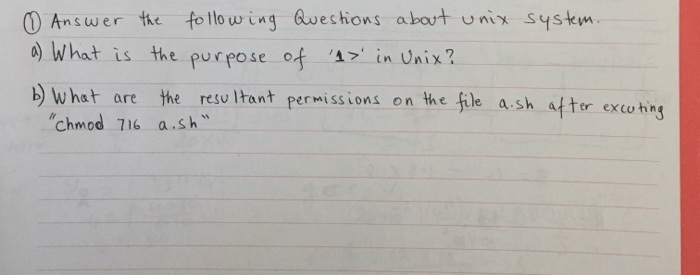 ① Answer the following Questions about unix system.
a) What is the purpose of '1>' in Unix?
b) What are the resultant permissions on the file a.sh after excuting
"chmod 716 a.sh"